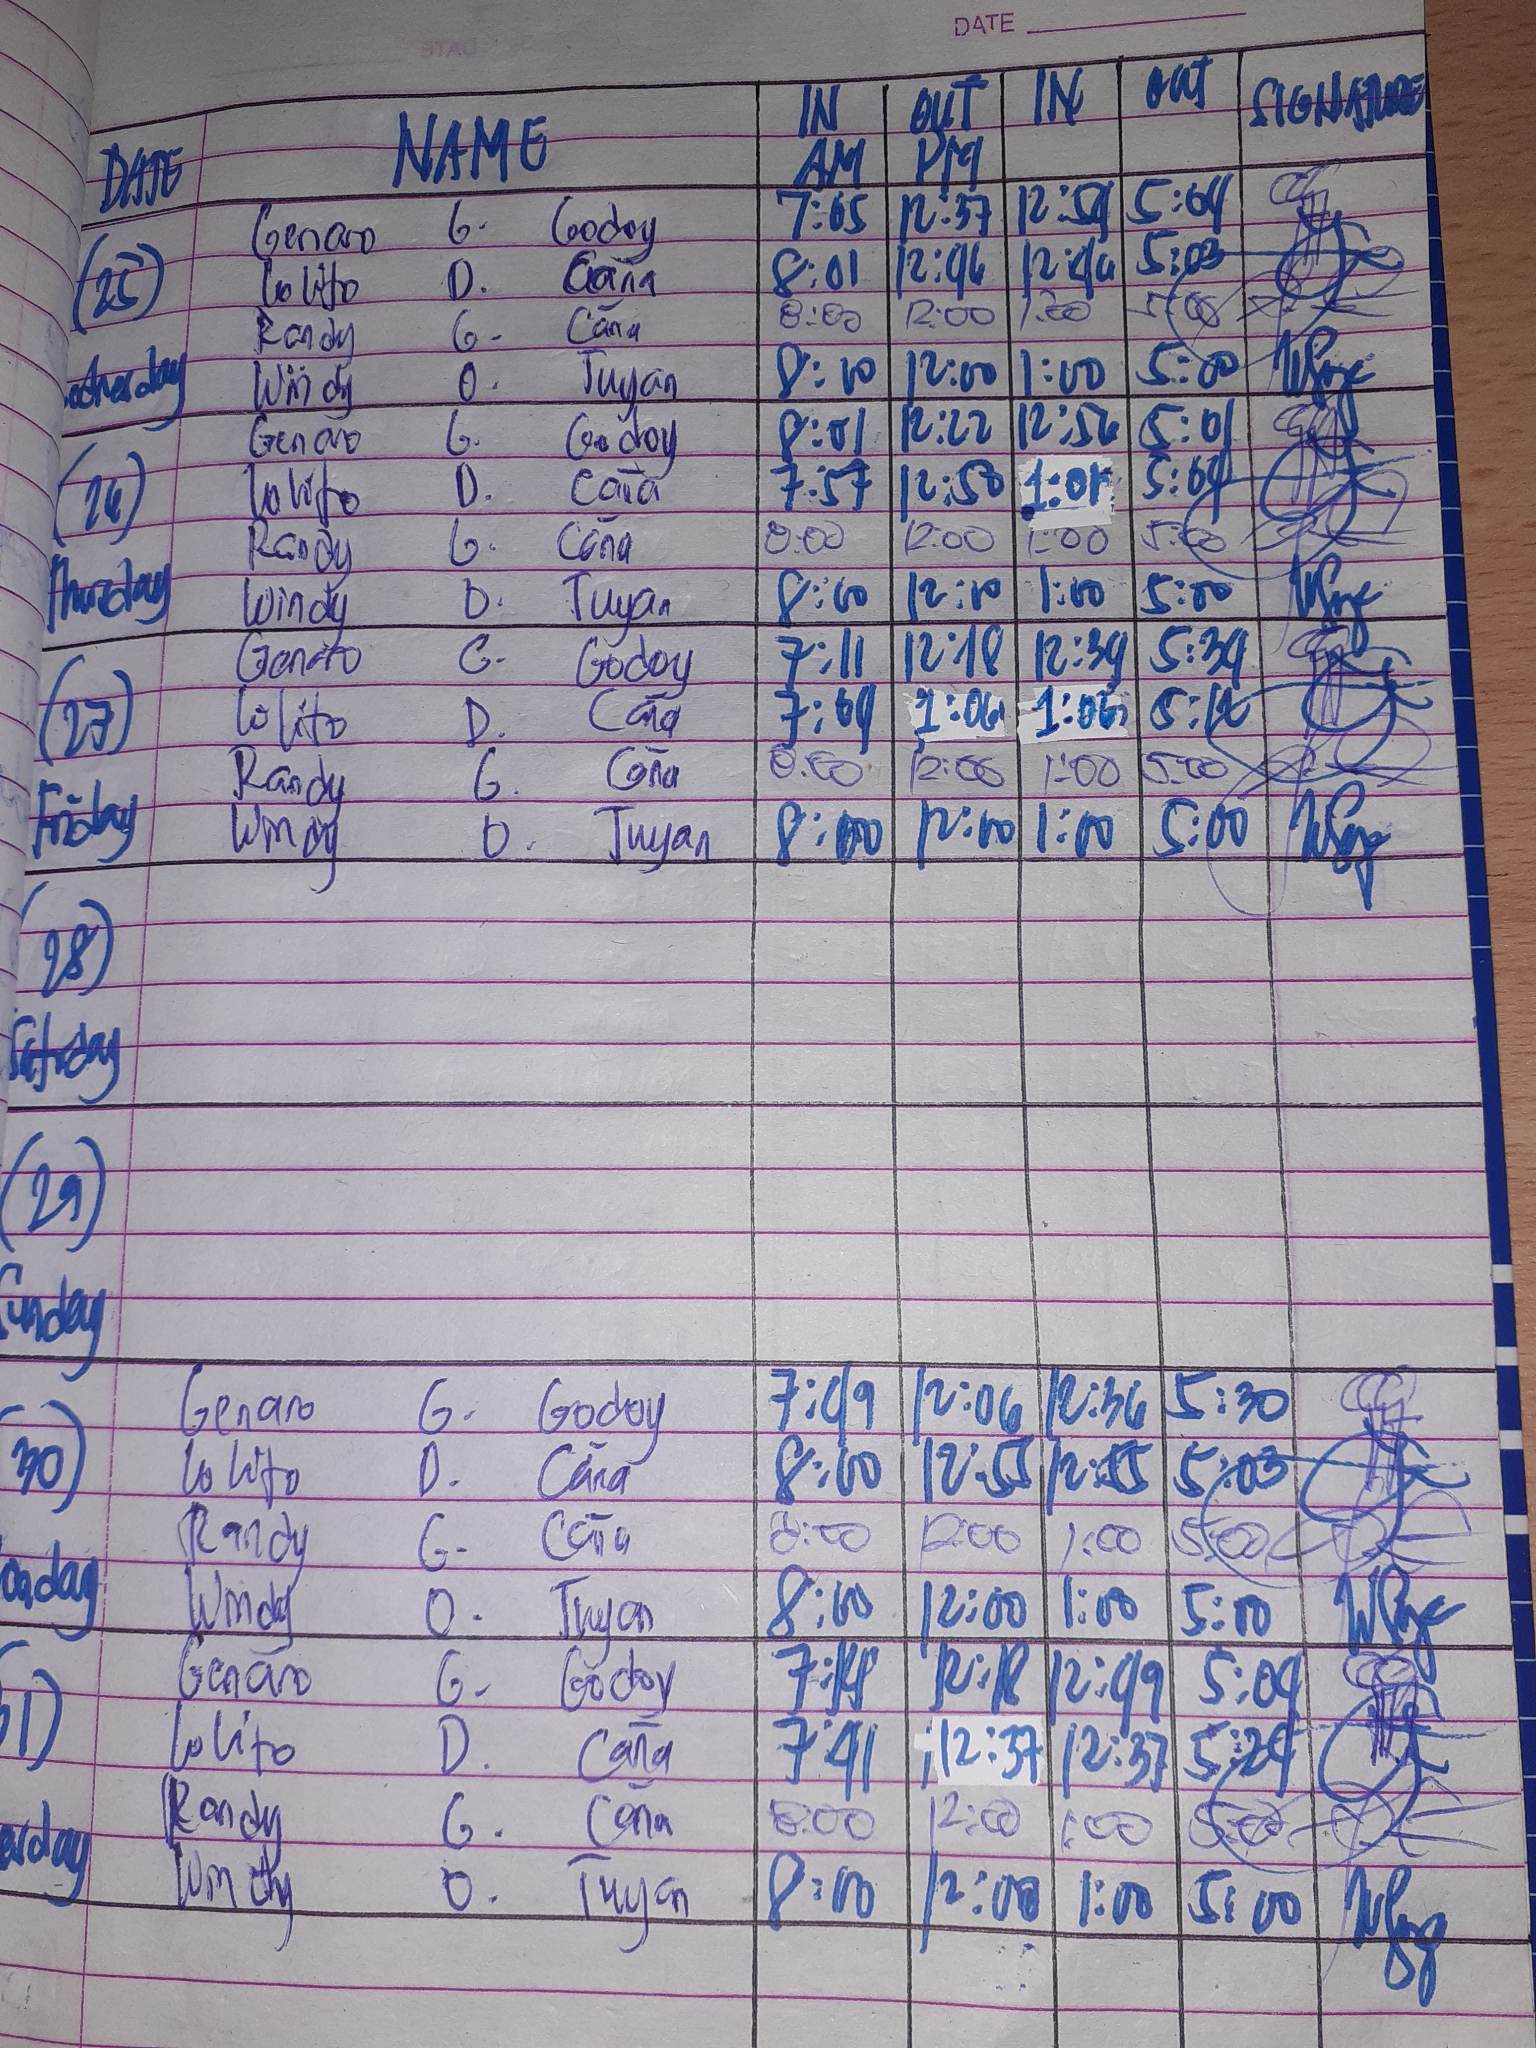 DATE
DATE NAME IN AM OUT PM IN OUT SIGNATURE
(25) Genaro G. Godoy 7:05 12:37 12:54 5:04
Lolito D. Caña 8:01 12:46 12:46 5:03
Randy G. Caña 8:00 12:00 1:00 5:00
Windy O. Tuyan 8:00 12:00 1:00 5:00
(26) Genaro G. Godoy 8:01 12:22 12:56 5:01
Lolito D. Caña 7:57 12:50 1:01 5:04
Randy G. Caña 8:00 12:00 1:00 5:00
Thursday Windy O. Tuyan 8:00 12:00 1:00 5:00
(27) Genaro G. Godoy 7:11 12:18 12:34 5:34
Lolito D. Caña 7:04 1:06 1:06 5:12
Randy G. Caña 8:00 12:00 1:00 5:00
Friday Windy O. Tuyan 8:00 12:00 1:00 5:00
(28)
Saturday
(29)
Sunday
30) Genaro G. Godoy 7:49 12:06 12:36 5:30
Lolito D. Caña 8:00 12:55 12:55 5:03
Randy G. Caña 8:00 12:00 1:00 5:00
onday Windy O. Tuyan 8:00 12:00 1:00 5:00
31) Genaro G. Godoy 12:18 12:49 5:04
Lolito D. Caña 7:41 12:37 12:37 5:24
Randy G. Caña 8:00 12:00 1:00 5:00
Windy O. Tuyan 8:00 12:00 1:00 5:00